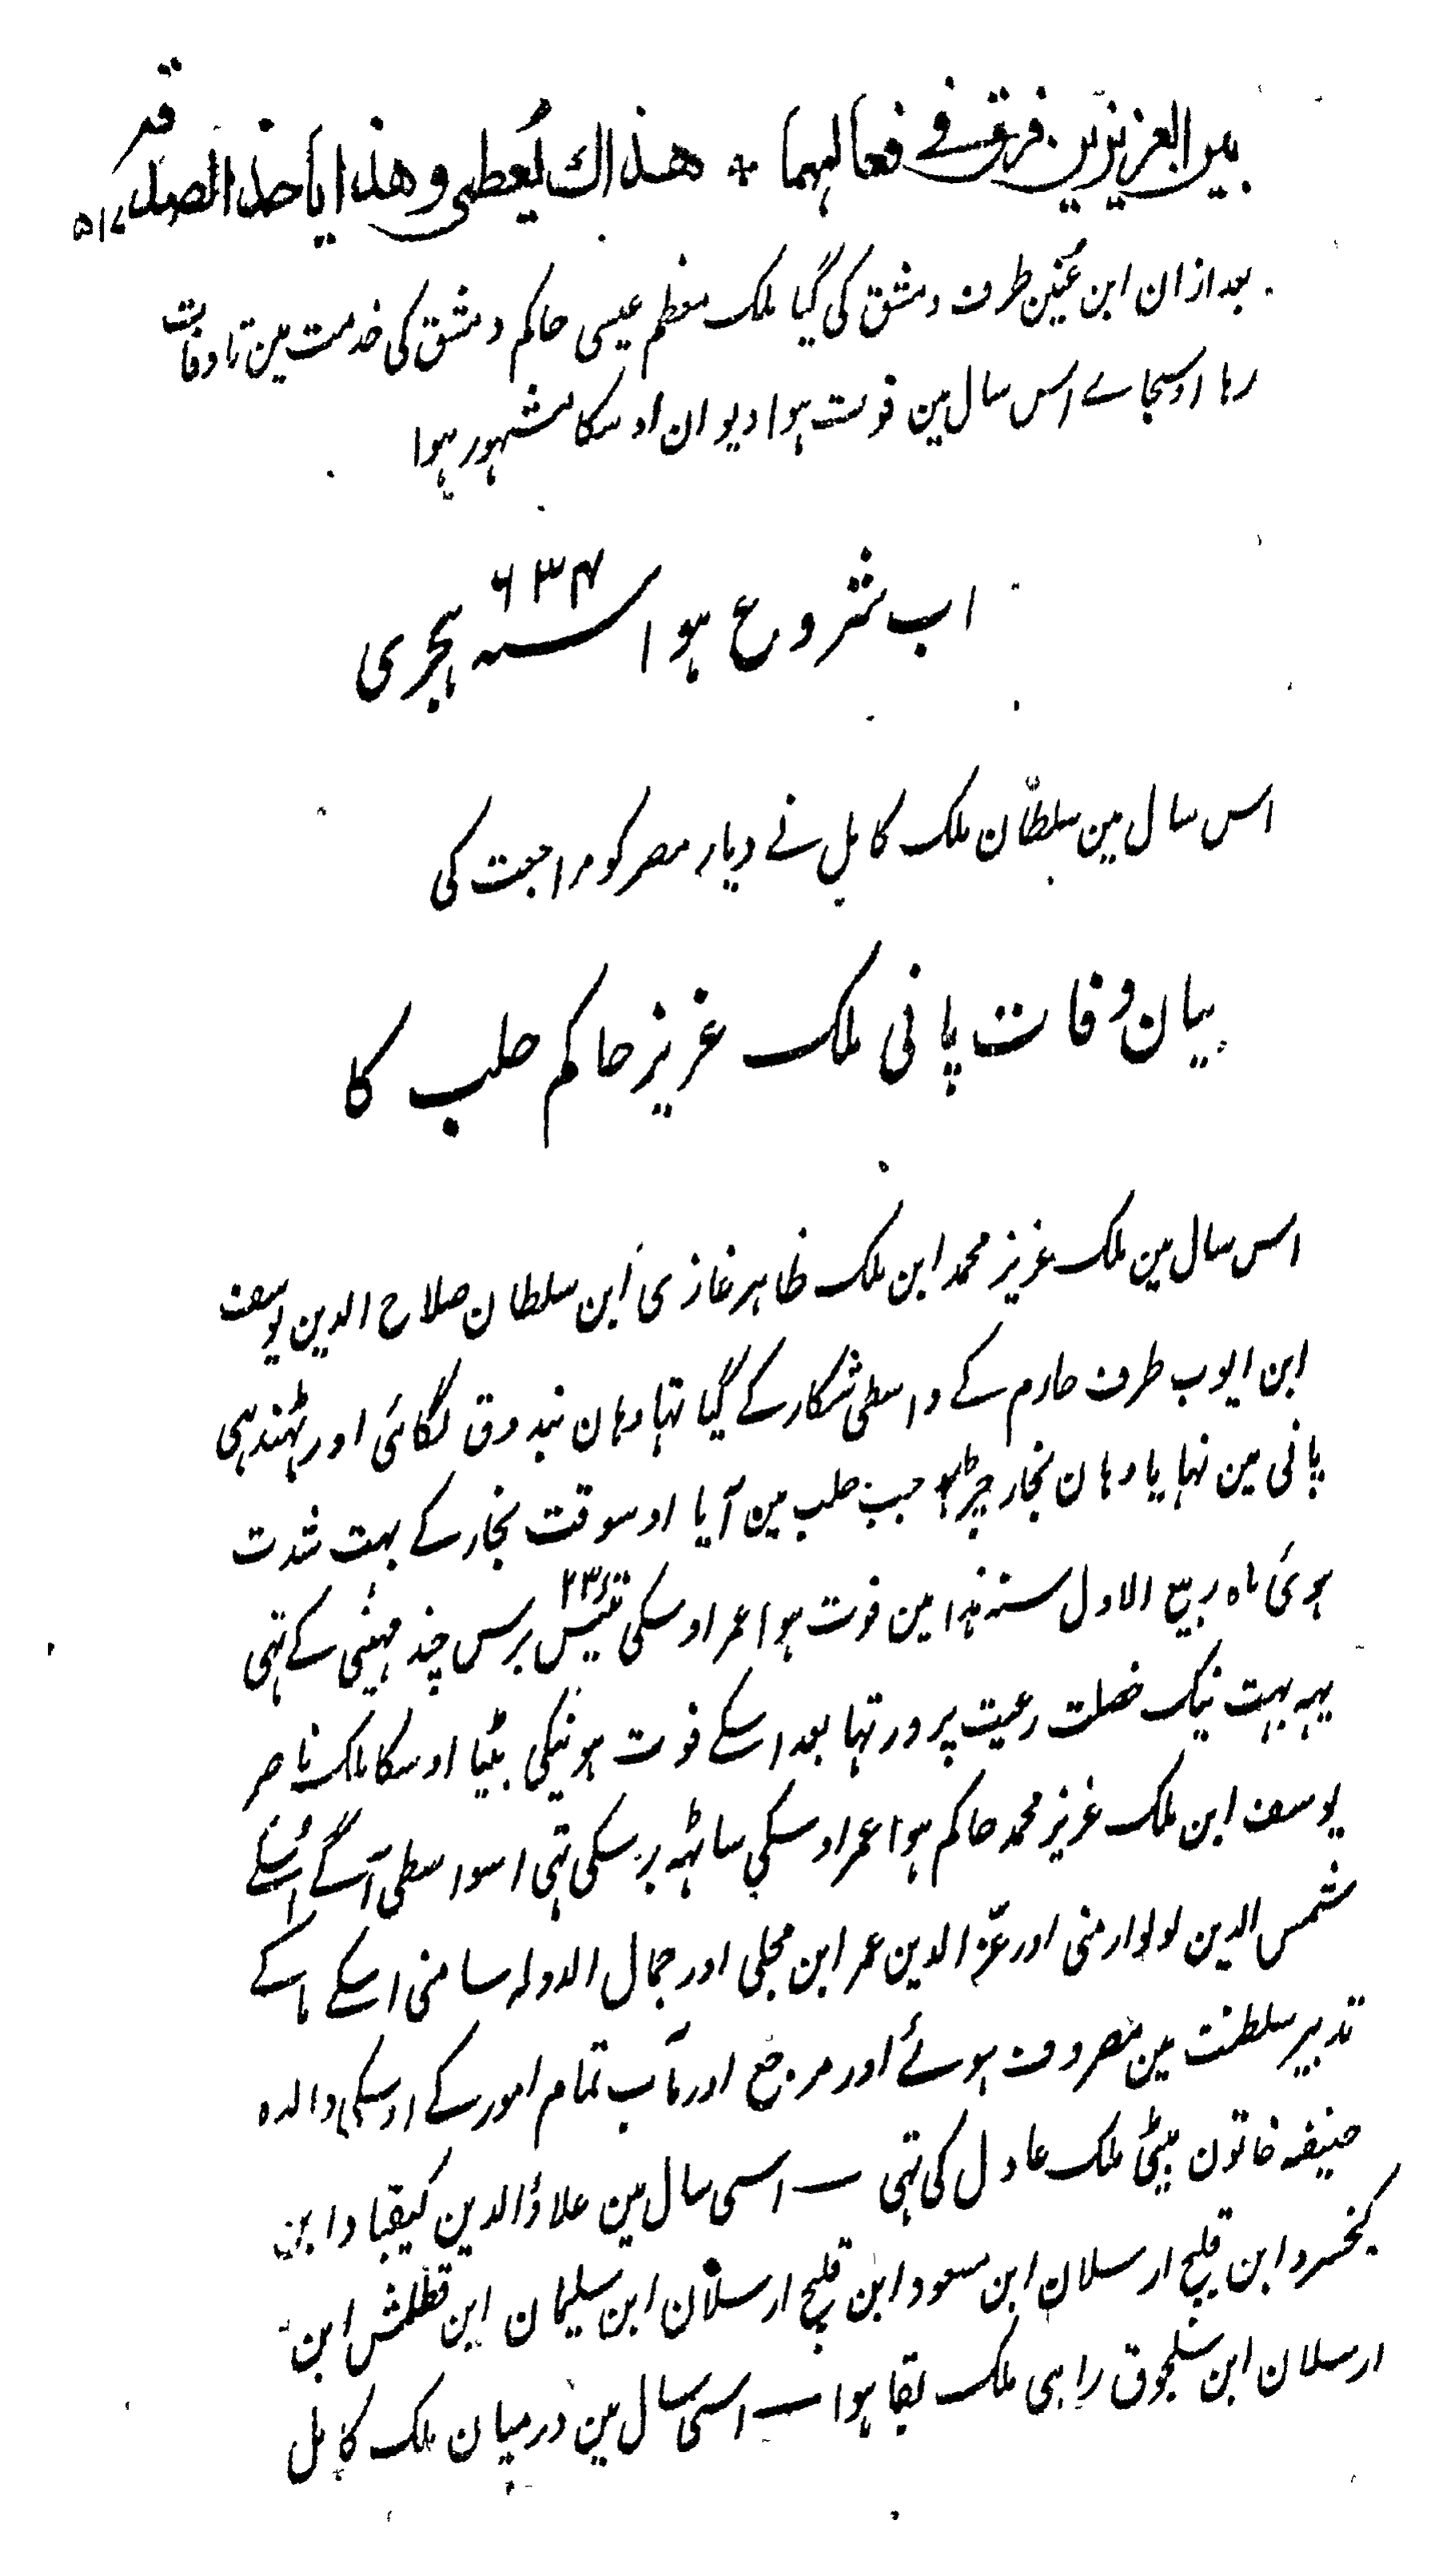 بين العزيزين فرق في فعالهما * هذاك يُعطي وهذا ياخذ الصدقه
۵۱۷
بعد ازان ابن عُنین طرف دمشق کی گیا ملک معظم عیسی حاکم دمشق کی خدمت مین تا وفات
رہا اوسجاے اس سال مین فوت ہوا دیوان اوسکا مشہور ہوا
اب شروع ہوا سنہ ۶۳۴ ہجری
اس سال مین سلطان ملک کامل نے دیار مصر کو مراجعت کی
بیان وفات پانی ملک عزیز حاکم حلب کا
اس سال مین ملک عزیز محمد ابن ملک ظاہر غازی ابن سلطان صلاح الدین یوسف
ابن ایوب طرف حارم کے واسطی شکار کے گیا تہا وہان بندوق لگائی اور ٹہنڈہی
پانی مین نہایا وہان بخار چڑہا جب حلب مین آیا اوسوقت بخار کے بہت شدت
ہوئی ماہ ربیع الاول سنہ ہذا مین فوت ہوا عمر اوسکی تئیس ۲۳ برس چند مہینی کے تہی
یہہ بہت نیک خصلت رعیت پرور تہا بعد اسکے فوت ہونیکی بیٹا اوسکا ملک ناصر
یوسف ابن ملک عزیز محمد حاکم ہوا عمر اوسکی ساٹہہ برسکی تہی اسواسطی آگے اُسکے
شمس الدین لولو ارمنی اور عزّ الدین عمر ابن مجلی اور جمال الدولہ سامنی اسکے ماکے
تدبیر سلطنت مین مصروف ہوئے اور مرجع اور مآب تمام امور کے اوسکی والدہ
حنیفہ خاتون بیٹی ملک عادل کی تہی ـ اسی سال مین علاؤالدین کیقباد ابن
کیخسرو ابن قلیج ارسلان ابن مسعود ابن قلیج ارسلان ابن سلیمان ابن قطلمش ابن
ارسلان ابن سلجوق راہی ملک بقا ہوا ـ اسی سال مین درمیان ملک کامل